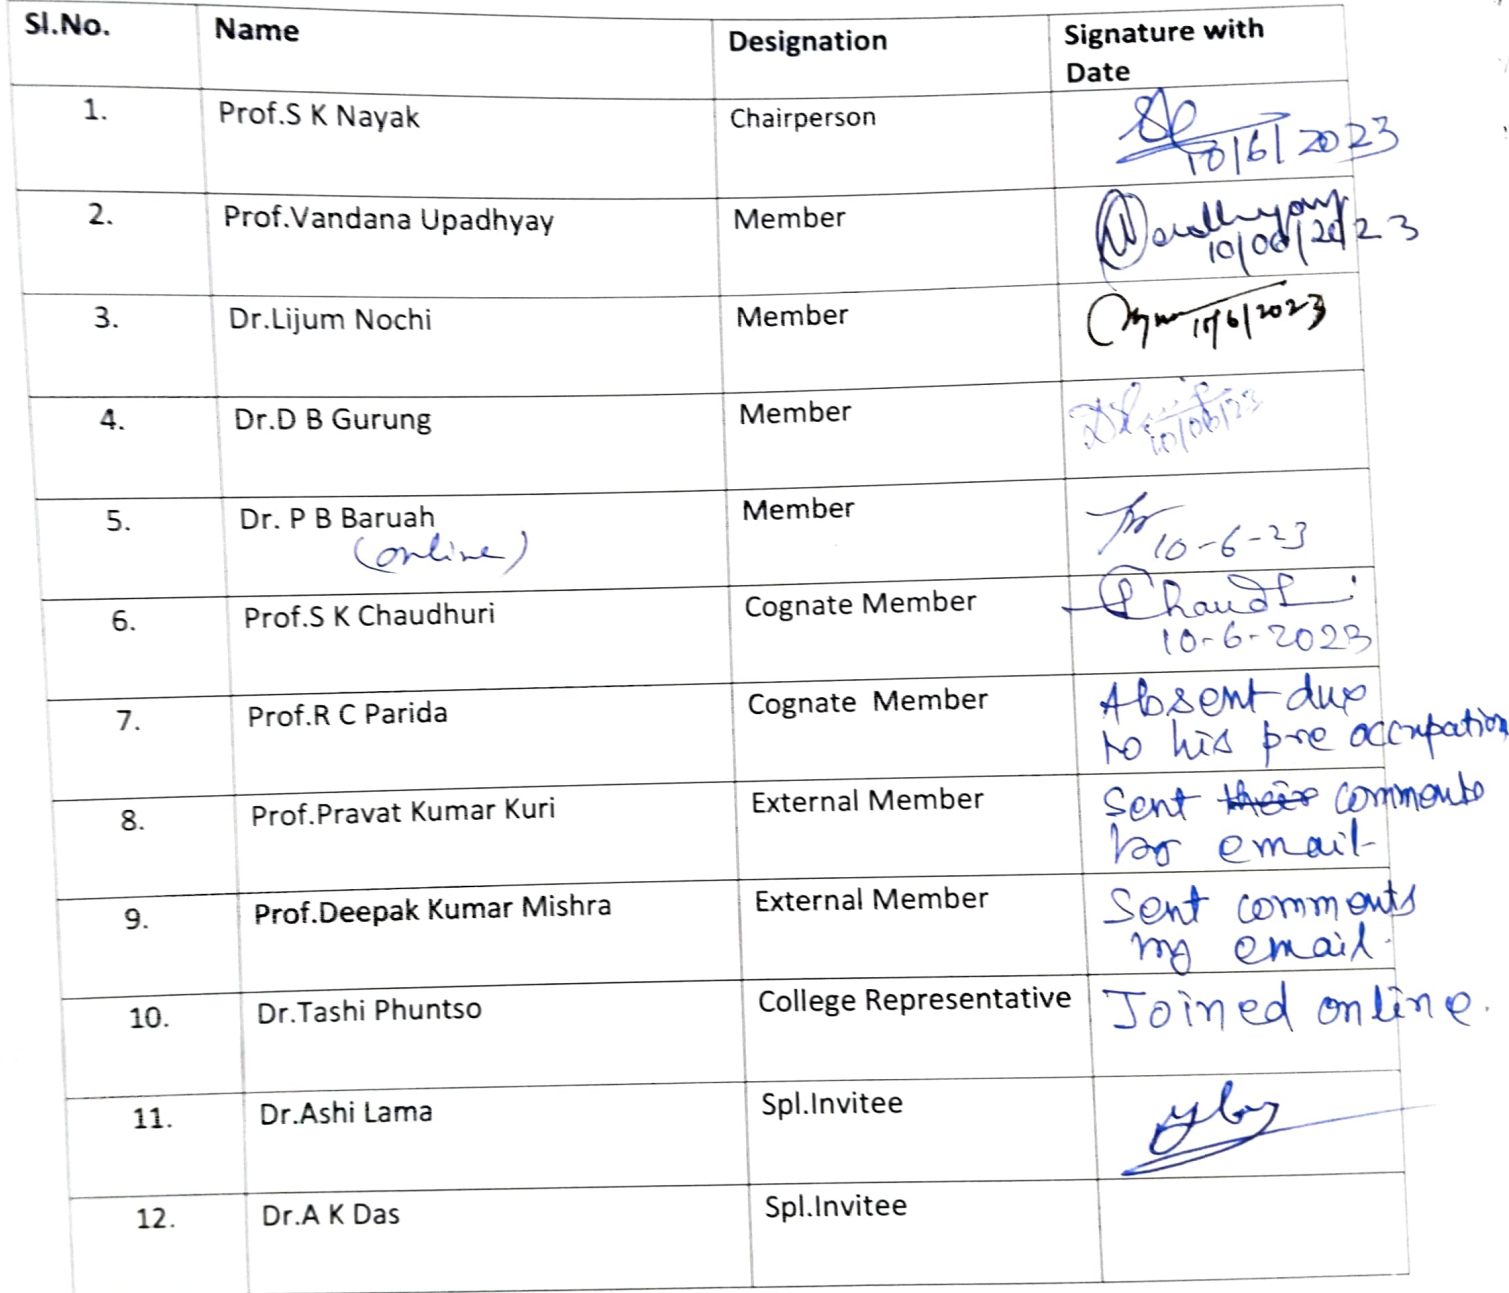 Sl.No. Name Designation Signature with
Date
1. Prof.S K Nayak Chairperson
10/6/2023
2. Prof.Vandana Upadhyay Member
10/06/2023
3. Dr.Lijum Nochi Member
10/6/2023
4. Dr.D B Gurung Member
10/06/23
5. Dr. P B Baruah Member
(online) 10-6-23
6. Prof.S K Chaudhuri Cognate Member
10-6-2023
7. Prof.R C Parida Cognate Member Absent due
to his pre occupation
8. Prof.Pravat Kumar Kuri External Member Sent their comments
by email
9. Prof.Deepak Kumar Mishra External Member Sent comments
by email.
10. Dr.Tashi Phuntso College Representative Joined online.
11. Dr.Ashi Lama Spl.Invitee
12. Dr.A K Das Spl.Invitee